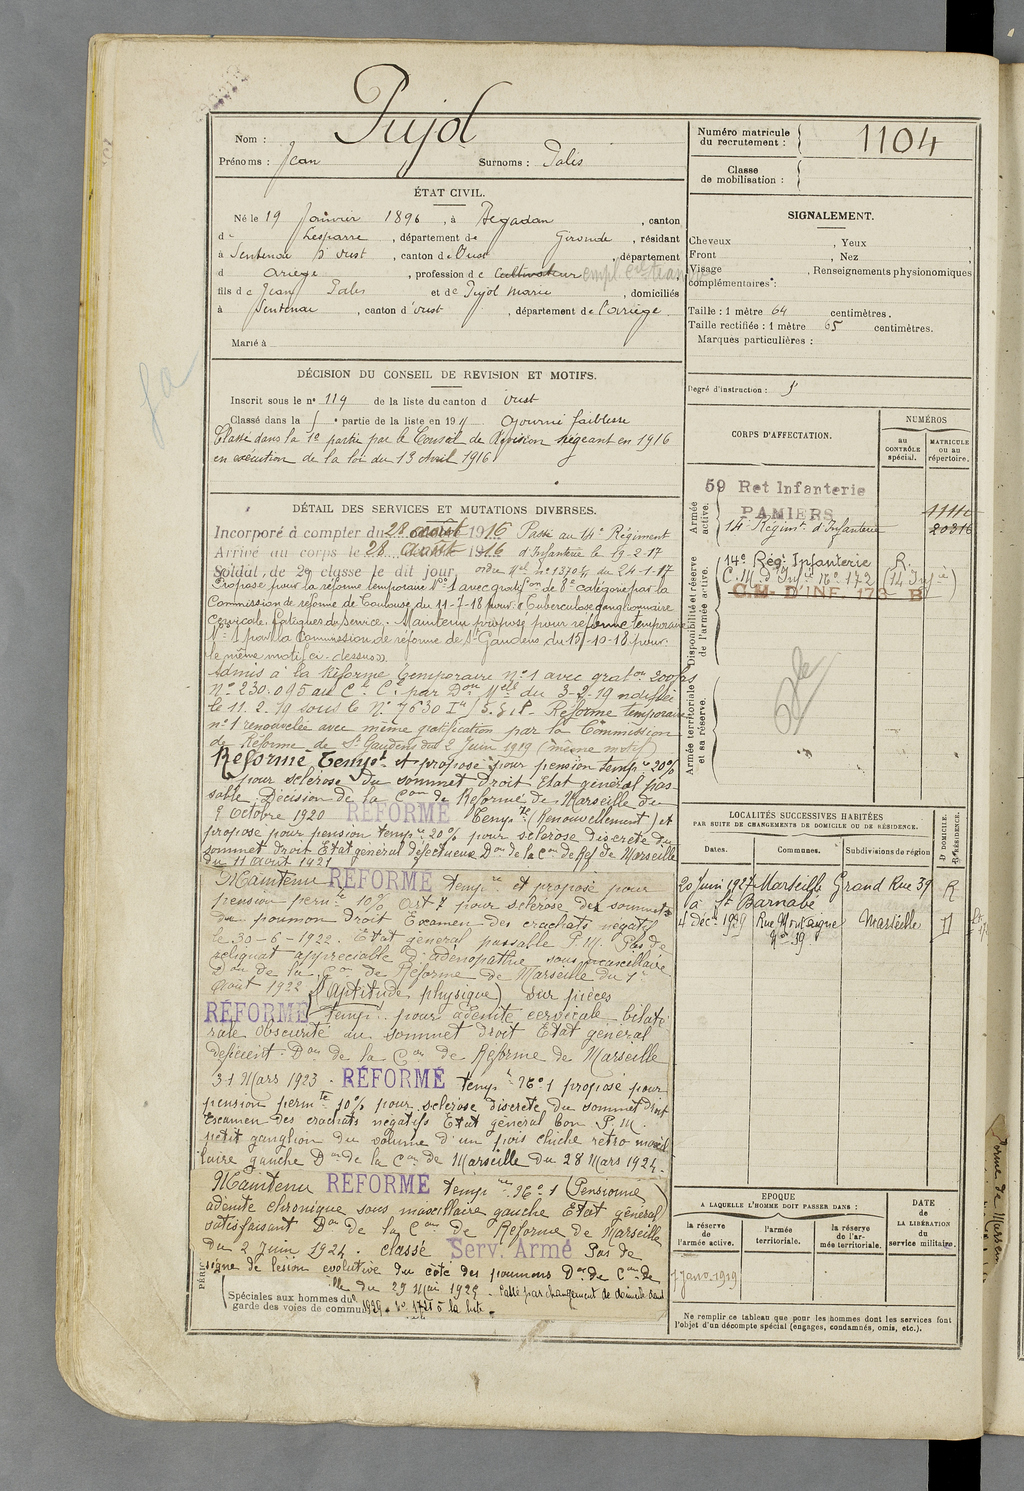 Pujol
Nom :
Prénoms : Jean Surnoms : Palis
Numéro matricule du recrutement : 1104
Classe de mobilisation :
ÉTAT CIVIL.
Né le 19 Janvier 1896, à Begadan, canton
de Lesparre, département de Gironde, résidant
à Sentenac d'oust, canton de Oust, département
d Ariège, profession de Cultivateur
fils de Jean Palis et de Pujol Marie, domiciliés
à Sentenac, canton d'oust, département de l'ariège.
Marié à
SIGNALEMENT.
Cheveux , Yeux ,
Front , Nez ,
Visage , Renseignements physionomiques
complémentaires :
Taille : 1 mètre 64 centimètres.
Taille rectifiée : 1 mètre 65 centimètres.
Marques particulières :
Degré d'instruction :
DÉCISION DU CONSEIL DE REVISION ET MOTIFS.
Inscrit sous le no 119 de la liste du canton d oust
Classé dans la partie de la liste en 19 Ajourné faiblesse
Classé dans la 1e partie par le Conseil de Révision siégeant en 1916
en exécution de la loi du 13 Avril 1916
DÉTAIL DES SERVICES ET MUTATIONS DIVERSES.
Incorporé à compter du 28 août 1916 Passé au 14e Régiment
Arrivé au corps le 28 août 1916 d'Infanterie le 19-2-17
Soldat de 2e classe le dit jour, ordre Mel no 1370 du 24-1-17
Proposé pour la réforme temporaire No 1 avec gratifon de 8e catégorie par la
Commission de réforme de Toulouse du 11-7-18 pour : Tuberculose ganglionnaire
cervicale. fatigues du Service. Maintenu proposé pour réforme temporaire
No 1 par la Commission de réforme de St Gaudens du 15-10-18 pour
le même motif ci-dessus.
Admis à la Réforme temporaire no 1 avec graton 200 frs
No 230.095 au Ct Ct par Don Melle du 3-2-19 notifiée
le 11.2.19 sous le No 7630 Réforme temporaire
no 1 renouvelée avec même gratification par la Commission
de Réforme de St Gaudens du 2 Juin 1919 (même motif)
Réformé tempot et proposé pour pension tempre 20%
pour sclérose du sommet droit Etat général pas-
sable. Décision de la Con de Réforme de Marseille du
9 Octobre 1920 RÉFORMÉ tempre (Renouvellement) et
proposé pour pension tempre 20% pour sclérose discrète du
sommet droit Etat général défectueux Don de la Con de Réf de Marseille
du 11 aout 1921
Maintenu RÉFORMÉ tempre et proposé pour
pension permte 10% art 7 pour sclérose des sommets
du poumon droit Examen des crachats négatif
le 30-6-1922. Etat général passable P.M. Pas de
reliquat appréciable d'adénopathie sous maxillaire
Don de la Con de Réforme de Marseille du 1er
Aout 1922 (Aptitude physique) sur pièces
RÉFORMÉ tempre pour adénite cervicale bilaté-
rale obscurité au sommet droit Etat général
déficient. Don de la Con de Réforme de Marseille
31 Mars 1923. RÉFORMÉ tempre No 1 proposé pour
pension permte 10% pour sclérose discrète du sommet droit
Examen des crachats négatifs Etat général bon P.M.
petit ganglion du volume d'un pois chiche rétro maxil-
laire gauche Don de la Con de Marseille du 28 Mars 1924.
Maintenu RÉFORMÉ tempre No 1 (Pensionné)
adénite chronique sous maxillaire gauche Etat général
satisfaisant Don de la Con de Réforme de Marseille
du 2 Juin 1924. classé Serv. Armé Pas de
signe de lésion évolutive du côté des poumons Don de Con de
ille du 29 Mai 1929. Passé par changement de domicile dans
Spéciales aux hommes du
garde des voies de commu
CORPS D'AFFECTATION.
NUMÉROS
au CONTRÔLE spécial.
MATRICULE ou au répertoire.
Armée active.
59 Ret Infanterie
PAMIERS
14e Régimt d'Infanterie 20816
Disponibilité et réserve de l'armée active.
14e Régt Infanterie R.
C. M. d'Infie No 172 (14 Infie)
C.M. D'INF. 173 B
Armée territoriale et sa réserve.
LOCALITÉS SUCCESSIVES HABITÉES
PAR SUITE DE CHANGEMENTS DE DOMICILE OU DE RÉSIDENCE.
Dates. Communes. Subdivisions de région D. DOMICILE. R. RÉSIDENCE.
20 Juin 1927 Marseille Grand Rue 39 R
à St Barnabé
4 Déc. 1929 Rue Montaigne Marseille D
No 39
EPOQUE
A LAQUELLE L'HOMME DOIT PASSER DANS :
la réserve de l'armée active.
l'armée territoriale.
la réserve de l'armée territoriale.
DATE de LA LIBÉRATION du service militaire.
1 Janv. 1919
Ne remplir ce tableau que pour les hommes dont les services font
l'objet d'un décompte spécial (engagés, condamnés, omis, etc.).